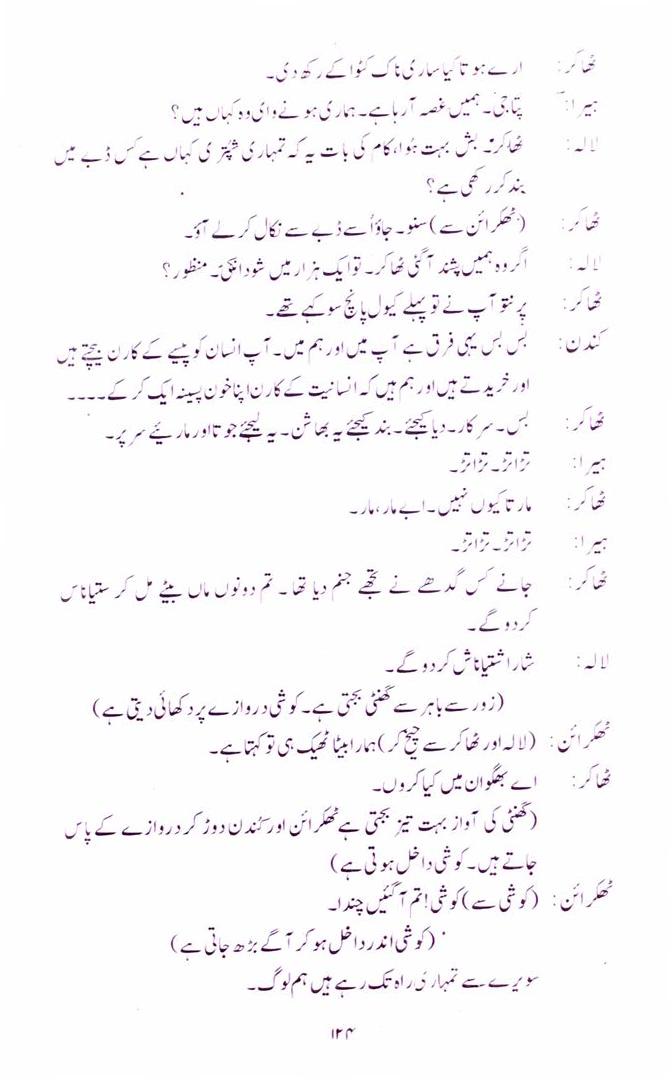 ٹھاکر: ارے ہوتا کیا ساری ناک کٹوا کے رکھ دی۔
ہیرا: پتاجی۔ ہمیں غصہ آرہا ہے۔ ہماری ہونے وای وہ کہاں ہیں؟
لالہ: ٹھاکر۔ بش بہت ہُوا، کام کی بات یہ کہ تمہاری شپُتری کہاں ہے کس ڈبے میں
بند کر رکھی ہے؟
ٹھاکر: (ٹھکرائن سے) سنو۔ جاؤ اُسے ڈبے سے نکال کر لے آؤ۔
لالہ: اگر وہ ہمیں پشند آ گئی ٹھاکر۔ تو ایک ہزار میں شودا نکّی۔ منظور؟
ٹھاکر: پرنتو آپ نے تو پہلے کیول پانچ سو کہے تھے۔
کندن: بس بس یہی فرق ہے آپ میں اور ہم میں۔ آپ انسان کو پیسے کے کارن بیچتے ہیں
اور خریدتے ہیں اور ہم ہیں کہ انسانیت کے کارن اپنا خون پسینہ ایک کر کے۔۔۔۔
ٹھاکر: بس۔ سرکار۔ دیا کیجئے۔ بند کیجئے یہ بھاشن۔ یہ لیجئے جوتا اور ماریئے سر پر۔
ہیرا: تڑاتڑ۔ تڑاتڑ۔
ٹھاکر: مارتا کیوں نہیں۔ اے مار، مار۔
ہیرا: تڑاتڑ۔ تڑاتڑ۔
ٹھاکر: جانے کس گدھے نے تجھے جنم دیا تھا۔ تم دونوں ماں بیٹے مل کر ستیاناس
کر دو گے۔
لالہ: شارا شتیاناش کر دو گے۔
(زور سے باہر سے گھنٹی بجتی ہے۔ کوشی دروازے پر دکھائی دیتی ہے)
ٹھکرائن: (لالہ اور ٹھاکر سے چیخ کر) ہمارا بیٹا ٹھیک ہی تو کہتا ہے۔
ٹھاکر: اے بھگوان میں کیا کروں۔
(گھنٹی کی آواز بہت تیز بجتی ہے ٹھکرائن اور کندن دوڑ کر دروازے کے پاس
جاتے ہیں۔ کوشی داخل ہوتی ہے)
ٹھکرائن: (کوشی سے) کوشی! تم آ گئیں چندا۔
(کوشی اندر داخل ہو کر آگے بڑھ جاتی ہے)
سویرے سے تمہاری راہ تک رہے ہیں ہم لوگ۔
۱۲۴